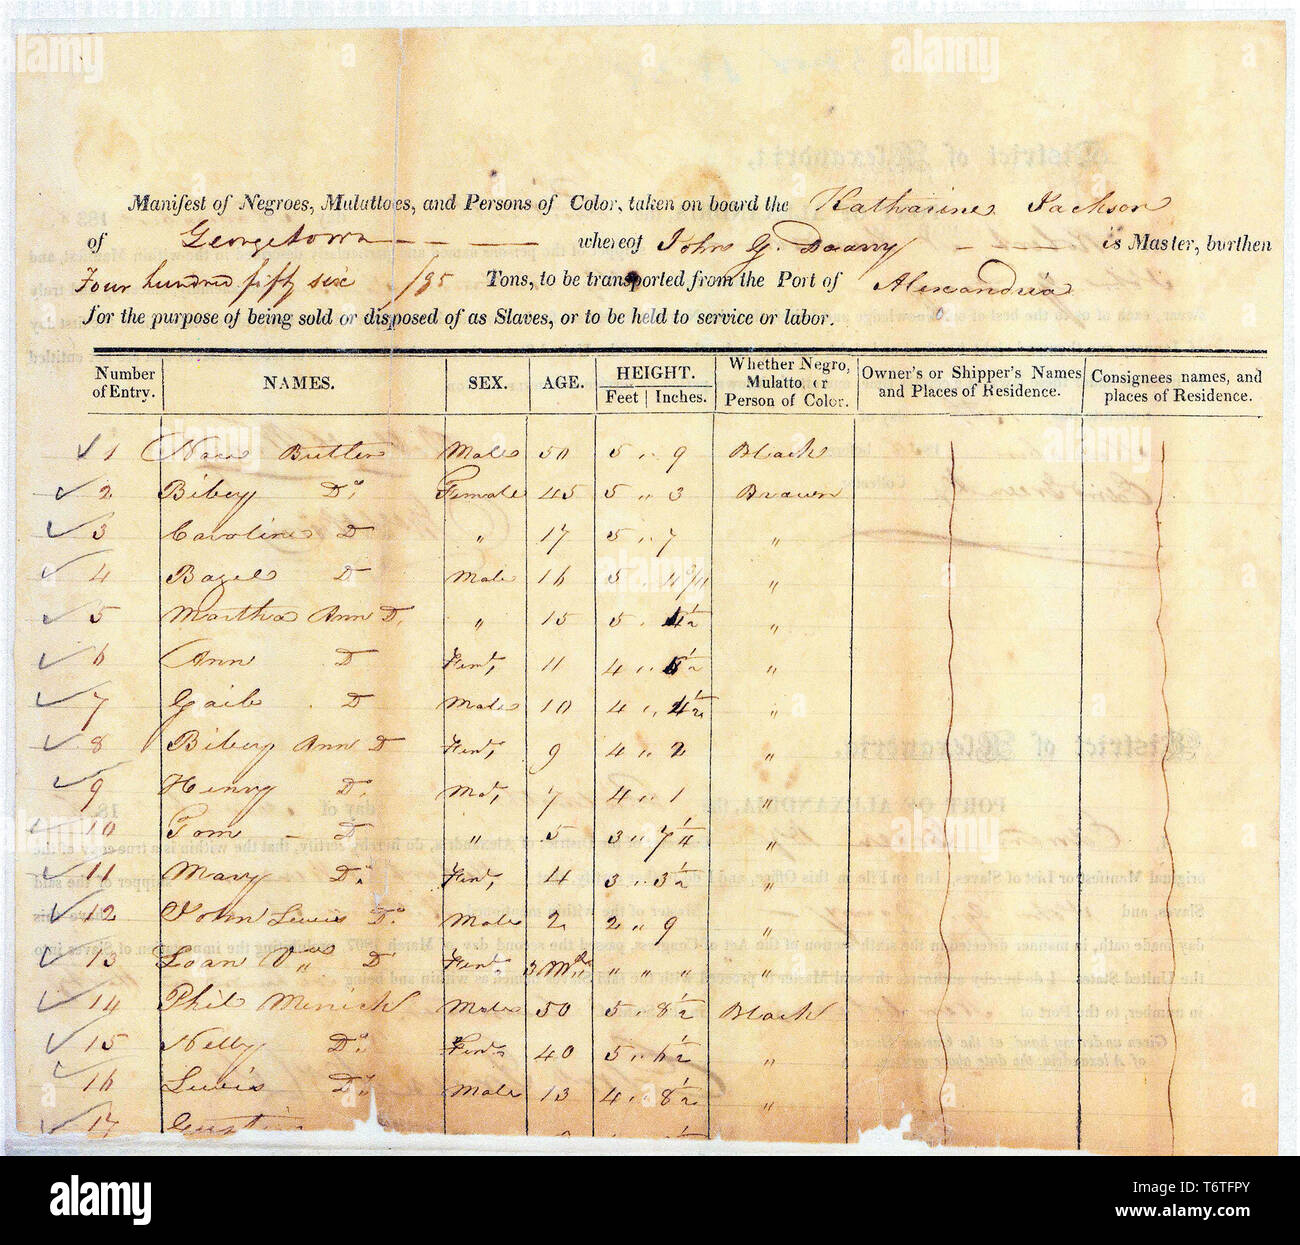 Manifest of Negroes, Mulattoes, and Persons of Color, taken on board the Katharine Jackson
of Georgetown whereof John G. is Master, burthen
Four hundred fifty six /95 Tons, to be transported from the Port of Alexandria
for the purpose of being sold or disposed of as Slaves, or to be held to service or labor.
Number of Entry. NAMES. SEX. AGE. HEIGHT. Feet Inches. Whether Negro, Mulatto, or Person of Color. Owner's or Shipper's Names and Places of Residence. Consignees names, and places of Residence.
1 Nace Butler Male 50 5 „ 9 Black
2 Bibey Do. Female 45 5 „ 3 Brown
3 Caroline D „ 17 5 „ 7 „
4 Bazel D Male 16 5 „ „
5 Martha Ann D. „ 15 5 „ 4½ „
6 Ann D Fem, 11 4 „ 5½ „
7 Gaib D Male 10 4 „ 4½ „
8 Bibey Ann D Fem, 9 4 „ 2 „
9 Henry D. Mal, 7 4 „ 1 „
10 Tom D. „ 5 3 „ 7¼ „
11 Mary Do. Fem, 4 3 „ 3½ „
12 John Lewis Do. Male 2 2 „ 9 „
13 D Fem, 3 Mths „ „ „ „
14 Phil Menick Male 50 5 „ 8½ Black
15 Nelly Do. Fem, 40 5 „ 6½ „
16 Lewis Do. Male 13 4 „ 8½ „
17
alamy
Image ID: T6TFPY
www.alamy.com